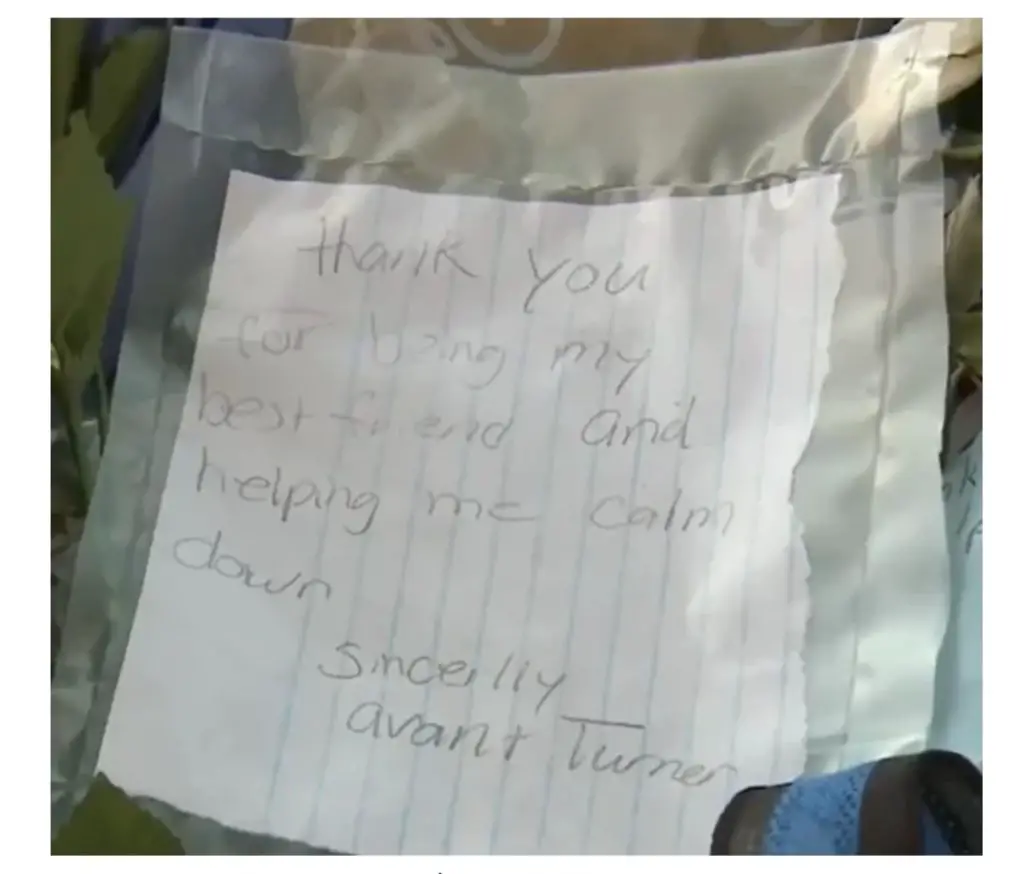 thank you
for being my
best friend and
helping me calm
down
Sincerlly
avant Turner